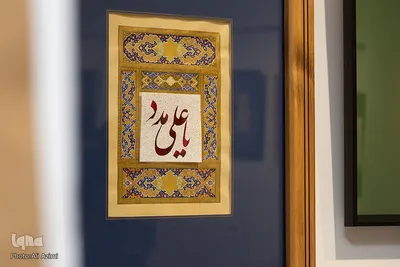 یا علی مدد
iqna
Photo:Ali Azimi